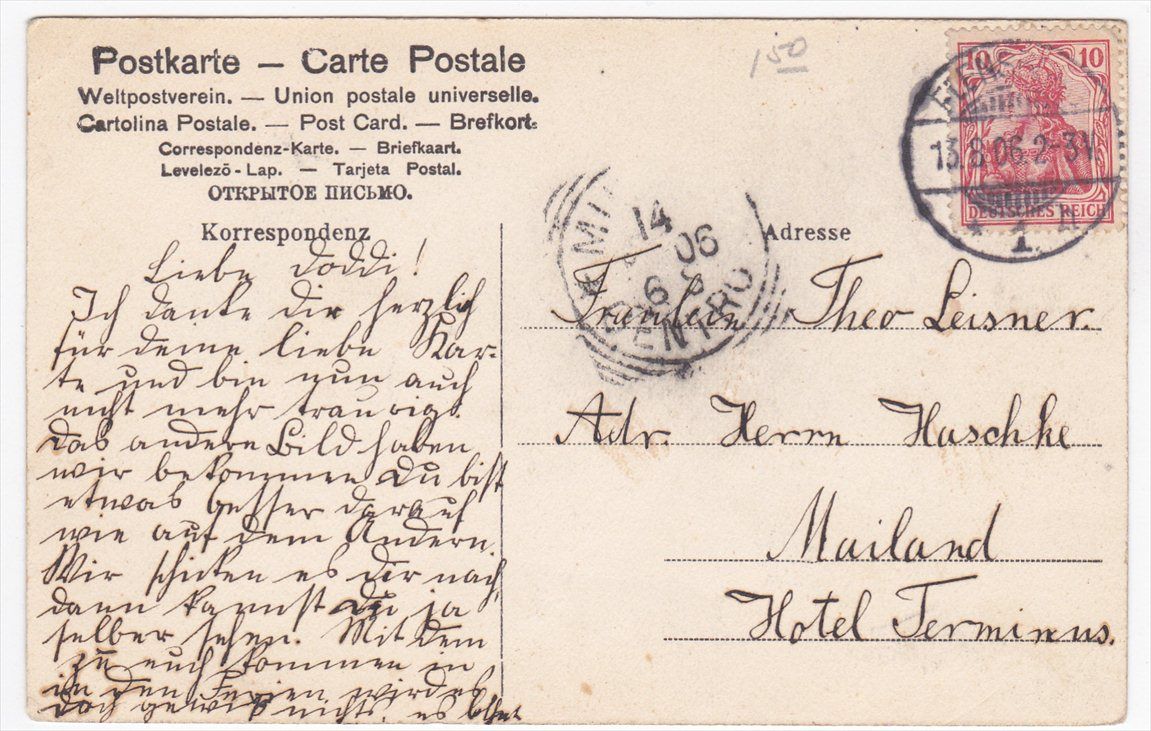 Postkarte — Carte Postale
Weltpostverein. — Union postale universelle.
Cartolina Postale. — Post Card. — Brefkort.
Correspondenz-Karte. — Briefkaart.
Levelező-Lap. — Tarjeta Postal.
ОТКРЫТОЕ ПИСЬМО.
1 50
10 10
DEUTSCHES REICH
13.8.06. 2-3 N
* 1. n
14
06
6 8
CENTRO
Korrespondenz
Liebe Doddi!
Ich danke dir herzlich
für deine liebe Kar-
te und bin nun auch
nicht mehr traurig.
das andere Bild haben
wir bekommen Du bist
etwas besser darauf
wie auf dem Andern.
Wir schicken es dir nach,
dann kannst Du ja
selber sehen. Mit dem
zu euch kommen in
in den Ferien wird es
doch gewiß nichts, es
Adresse
Fräulein Theo Leisner.
Adr. Herrn Haschke
Mailand
Hotel Terminus.